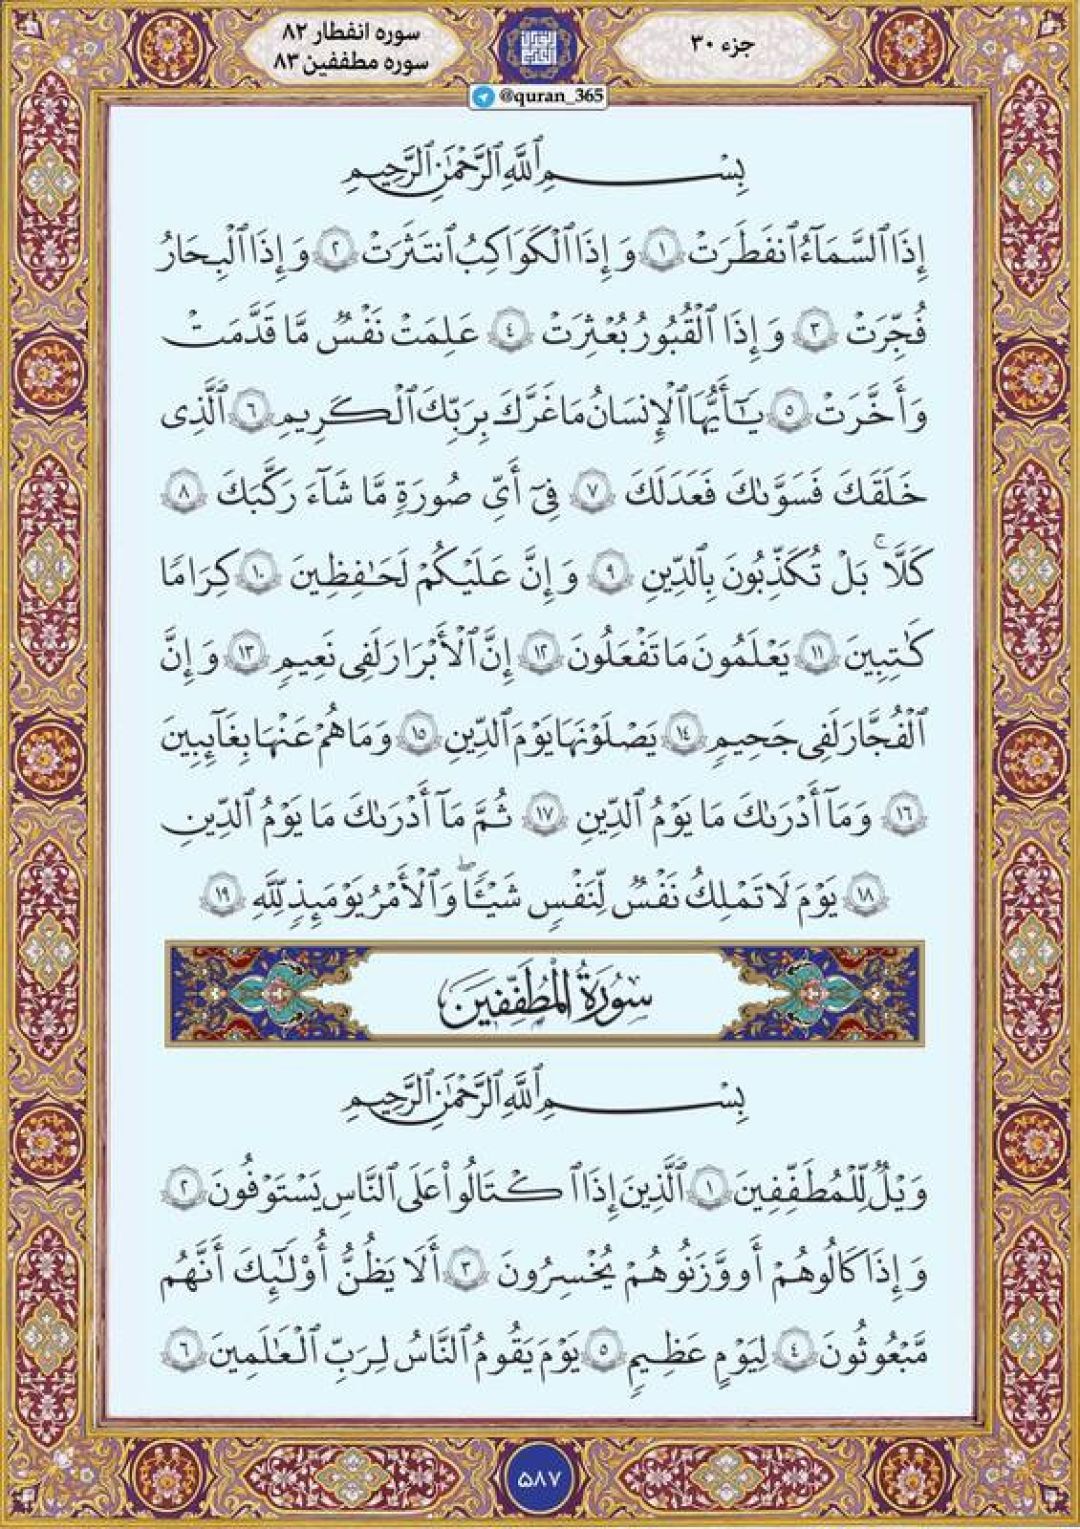 جزء ۳۰
سوره انفطار ۸۲
سوره مطففین ۸۳
@quran_365
بِسْمِ ٱللَّهِ ٱلرَّحْمَٰنِ ٱلرَّحِيمِ
إِذَا ٱلسَّمَآءُ ٱنفَطَرَتْ ١ وَإِذَا ٱلْكَوَاكِبُ ٱنتَثَرَتْ ٢ وَإِذَا ٱلْبِحَارُ
فُجِّرَتْ ٣ وَإِذَا ٱلْقُبُورُ بُعْثِرَتْ ٤ عَلِمَتْ نَفْسٌ مَّا قَدَّمَتْ
وَأَخَّرَتْ ٥ يَٰٓأَيُّهَا ٱلْإِنسَانُ مَا غَرَّكَ بِرَبِّكَ ٱلْكَرِيمِ ٦ ٱلَّذِى
خَلَقَكَ فَسَوَّىٰكَ فَعَدَلَكَ ٧ فِىٓ أَىِّ صُورَةٍ مَّا شَآءَ رَكَّبَكَ ٨
كَلَّا ۚ بَلْ تُكَذِّبُونَ بِٱلدِّينِ ٩ وَإِنَّ عَلَيْكُمْ لَحَٰفِظِينَ ١٠ كِرَامًا
كَٰتِبِينَ ١١ يَعْلَمُونَ مَا تَفْعَلُونَ ١٢ إِنَّ ٱلْأَبْرَارَ لَفِى نَعِيمٍ ١٣ وَإِنَّ
ٱلْفُجَّارَ لَفِى جَحِيمٍ ١٤ يَصْلَوْنَهَا يَوْمَ ٱلدِّينِ ١٥ وَمَا هُمْ عَنْهَا بِغَآئِبِينَ
١٦ وَمَآ أَدْرَىٰكَ مَا يَوْمُ ٱلدِّينِ ١٧ ثُمَّ مَآ أَدْرَىٰكَ مَا يَوْمُ ٱلدِّينِ
١٨ يَوْمَ لَا تَمْلِكُ نَفْسٌ لِّنَفْسٍ شَيْـًٔا ۖ وَٱلْأَمْرُ يَوْمَئِذٍ لِّلَّهِ ١٩
سُورَةُ الْمُطَفِّفِينَ
بِسْمِ ٱللَّهِ ٱلرَّحْمَٰنِ ٱلرَّحِيمِ
وَيْلٌ لِّلْمُطَفِّفِينَ ١ ٱلَّذِينَ إِذَا ٱكْتَالُوا۟ عَلَى ٱلنَّاسِ يَسْتَوْفُونَ ٢
وَإِذَا كَالُوهُمْ أَو وَّزَنُوهُمْ يُخْسِرُونَ ٣ أَلَا يَظُنُّ أُو۟لَٰٓئِكَ أَنَّهُم
مَّبْعُوثُونَ ٤ لِيَوْمٍ عَظِيمٍ ٥ يَوْمَ يَقُومُ ٱلنَّاسُ لِرَبِّ ٱلْعَٰلَمِينَ ٦
۵۸۷